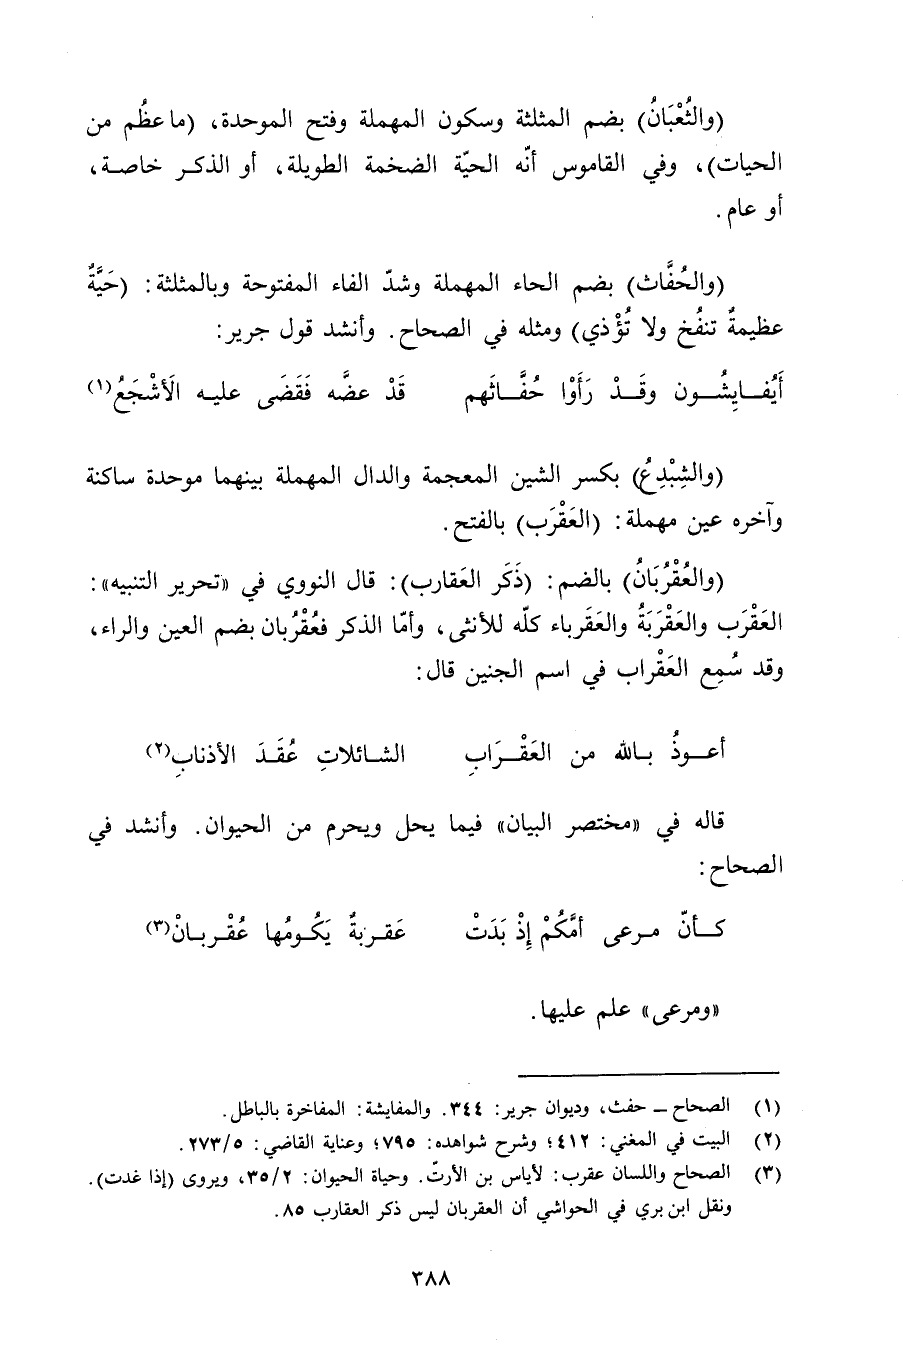 (والثُّعْبَانُ) بضم المثلثة وسكون المهملة وفتح الموحدة، (ما عظُم من
الحيات)، وفي القاموس أنّه الحيّة الضخمة الطويلة، أو الذكر خاصة،
أو عام.
(والحُفَّاث) بضم الحاء المهملة وشدّ الفاء المفتوحة وبالمثلثة: (حَيَّةٌ
عظيمةٌ تنفُخ ولا تُؤْذي) ومثله في الصحاح. وأنشد قول جرير:
أَيُفايِشُون وقَدْ رَأَوْا حُفَّاثَهم قَدْ عضَّه فَقَضَى عليه الَأشْجَعُ(١)
(والشِبْدِعُ) بكسر الشين المعجمة والدال المهملة بينهما موحدة ساكنة
وآخره عين مهملة: (العَقْرَب) بالفتح.
(والعُقْرُبَانُ) بالضم: (ذَكَر العَقارب): قال النووي في «تحرير التنبيه»:
العَقْرَب والعَقْرَبَةُ والعَقَرباء كلّه للأنثى، وأمّا الذكر فعُقْرُبان بضم العين والراء،
وقد سُمِع العَقْراب في اسم الجنين قال:
أعوذُ بالله من العَقْرَابِ الشائلاتِ عُقَدَ الأذنابِ(٢)
قاله في «مختصر البيان» فيما يحل ويحرم من الحيوان. وأنشد في
الصحاح:
كأنّ مرعى أمَّكُمْ إذْ بَدَتْ عَقربةٌ يَكُومُها عُقْربانْ(٣)
«ومرعى» علم عليها.
(١) الصحاح – حفث، وديوان جرير: ٣٤٤. والمفايشة: المفاخرة بالباطل.
(٢) البيت في المغني: ٤١٢؛ وشرح شواهده: ٧٩٥؛ وعناية القاضي: ٢٧٣/٥.
(٣) الصحاح واللسان عقرب: لأياس بن الأرتّ. وحياة الحيوان: ٣٥/٢، ويروى (إذا غدت).
ونقل ابن بري في الحواشي أن العقربان ليس ذكر العقارب ٨٥.
٣٨٨